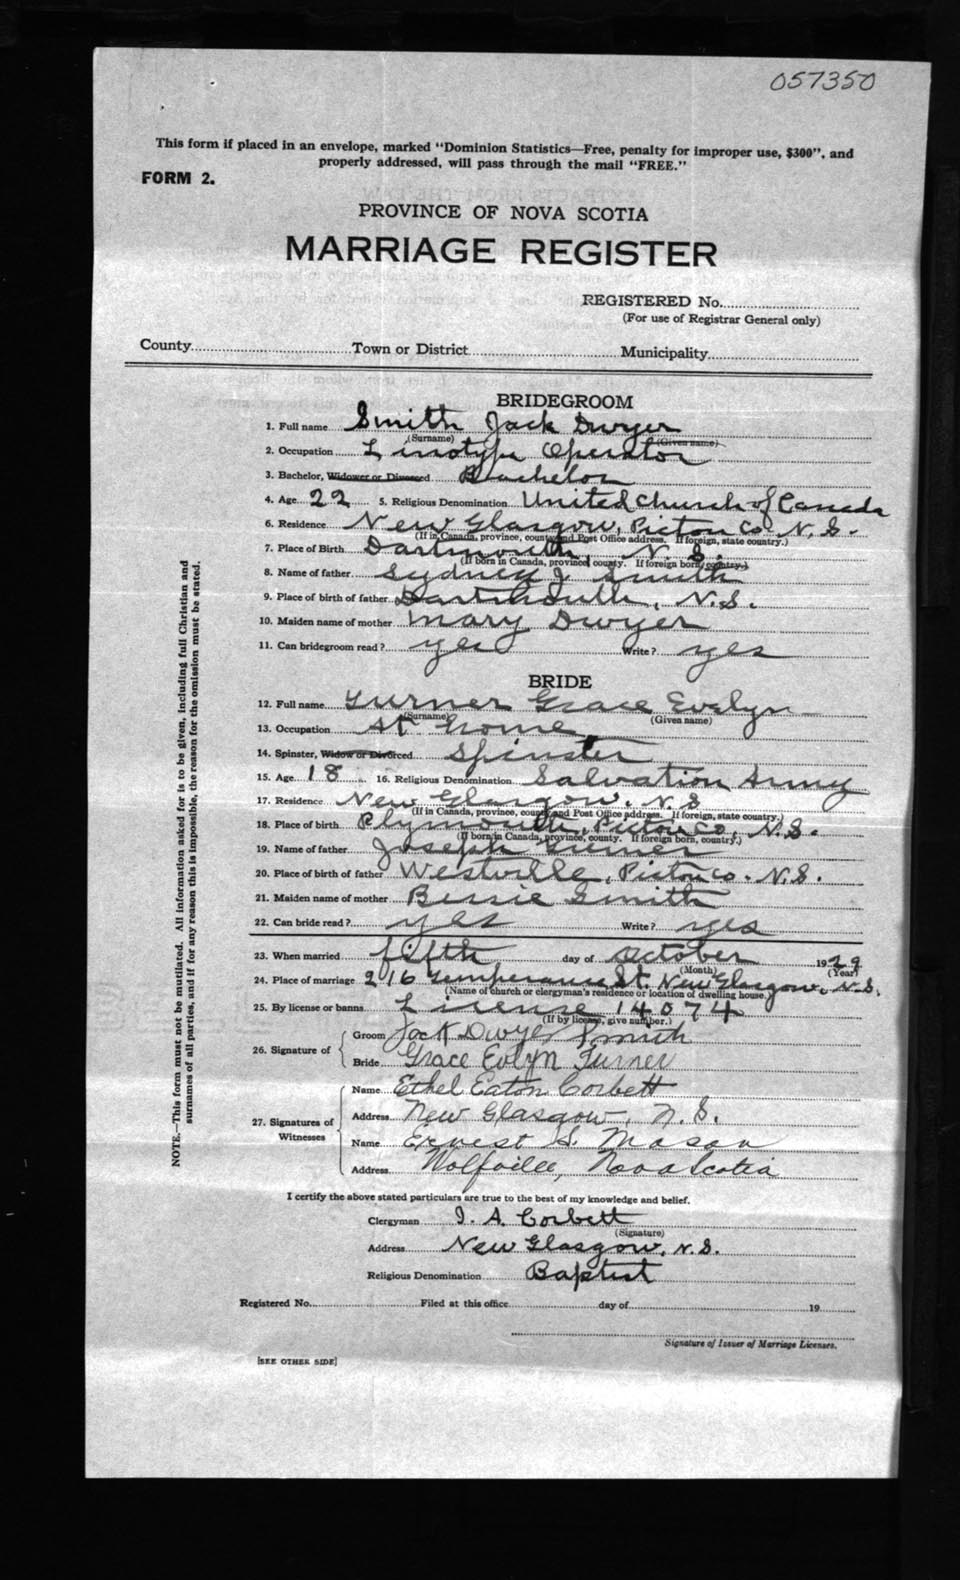 057350
This form if placed in an envelope, marked "Dominion Statistics—Free, penalty for improper use, $300", and
properly addressed, will pass through the mail "FREE."
FORM 2.
PROVINCE OF NOVA SCOTIA
MARRIAGE REGISTER
REGISTERED No.
(For use of Registrar General only)
County Town or District Municipality
BRIDEGROOM
1. Full name Smith Jack Dwyer
(Surname) (Given name)
2. Occupation Linotype Operator
3. Bachelor, Widower or Divorced Bachelor
4. Age 22 5. Religious Denomination United Church of Canada
6. Residence New Glasgow, Pictou Co. N. S.
(If in Canada, province, county and Post Office address. If foreign, state country.)
7. Place of Birth Dartmouth, N. S.
(If born in Canada, province, county. If foreign born, country.)
8. Name of father Sydney J Smith
9. Place of birth of father Dartmouth, N.S.
10. Maiden name of mother Mary Dwyer
11. Can bridegroom read? yes Write? yes
BRIDE
12. Full name Turner Grace Evelyn
(Surname) (Given name)
13. Occupation At Home
14. Spinster, Widow or Divorced Spinster
15. Age 18 16. Religious Denomination Salvation Army
17. Residence New Glasgow, N.S
(If in Canada, province, county and Post Office address. If foreign, state country.)
18. Place of birth Plymouth, Pictou Co, N.S.
(If born in Canada, province, county. If foreign born, country.)
19. Name of father Joseph Turner
20. Place of birth of father Westville, Pictou Co. N.S.
21. Maiden name of mother Bessie Smith
22. Can bride read? yes Write? yes
23. When married fifth day of October 1929
(Month) (Year)
24. Place of marriage 216 Temperance St. New Glasgow, N.S.
(Name of church or clergyman's residence or location of dwelling house.)
25. By license or banns License 14074
(If by license, give number.)
26. Signature of
Groom Jack Dwyer Smith
Bride Grace Evlyn Turner
27. Signatures of Witnesses
Name Ethel Eaton Corbett
Address New Glasgow, N. S.
Name Ernest S. Mason
Address Wolfville, Nova Scotia
I certify the above stated particulars are true to the best of my knowledge and belief.
Clergyman I. A. Corbett
(Signature)
Address New Glasgow, N.S.
Religious Denomination Baptist
Registered No. Filed at this office day of 19
Signature of Issuer of Marriage Licenses.
[SEE OTHER SIDE]
NOTE.—This form must not be mutilated. All information asked for is to be given, including full Christian and
surnames of all parties, and if for any reason this is impossible, the reason for the omission must be stated.